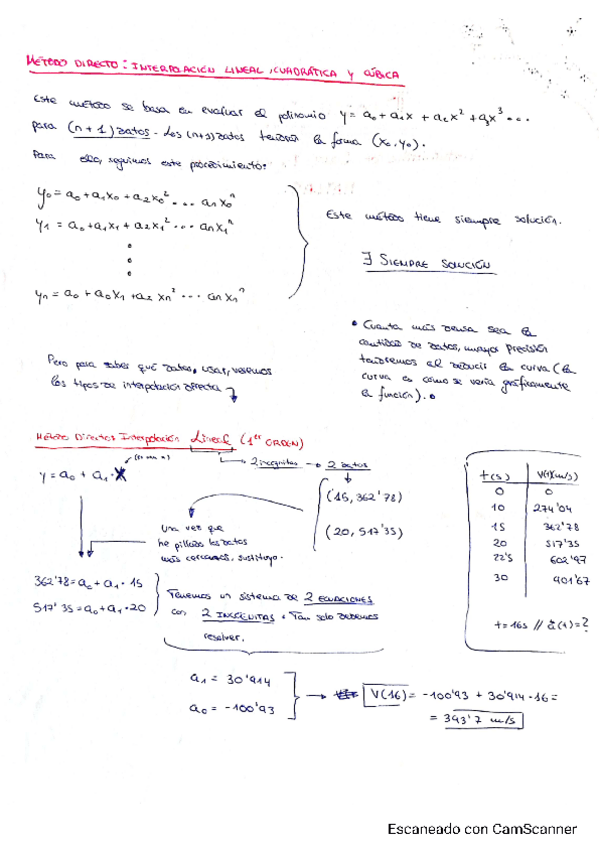 MÉTODO DIRECTO: INTERPOLACIÓN LINEAL, CUADRÁTICA Y CÚBICA
Este método se basa en evaluar el polinomio y = a₀ + a₁x + a₂x² + a₃x³ ...
para (n+1) datos. Los (n+1) datos tendrán la forma (x₀, y₀).
Para ello, seguimos este procedimiento:
y₀ = a₀ + a₁x₀ + a₂x₀² ... anx₀ⁿ
y₁ = a₀ + a₁x₁ + a₂x₁² ... anx₁ⁿ
yn = a₀ + a₀x₁ + a₂ xn² ... anx₁ⁿ
Este método tiene siempre solución.
∃ SIEMPRE SOLUCIÓN
• Cuanta más densa sea la
cantidad de datos, mayor precisión
tendremos al deducir la curva (la
curva es como se vería gráficamente
la función).
Pero para saber qué datos usar, veremos
los tipos de interpolación directa
Método Directos Interpolación Lineal (1er ORDEN)
2 incognitas → 2 datos
y = a₀ + a₁ · x
(15, 362'78)
(20, 517'35)
Una vez que
he pillado los datos
más cercanos, sustituyo.
362'78 = a₀ + a₁ · 15
517'35 = a₀ + a₁ · 20
Tenemos un sistema de 2 ECUACIONES
con 2 INCÓGNITAS. Tan solo debemos
resolver.
t(s) V(t)(m/s)
0 0
10 274'04
15 362'78
20 517'35
22'5 602'97
30 901'67
t = 16s // a(t) = ?
a₁ = 30'914
a₀ = -100'93
→ V(16) = -100'93 + 30'914 · 16 =
= 393'7 m/s
Escaneado con CamScanner